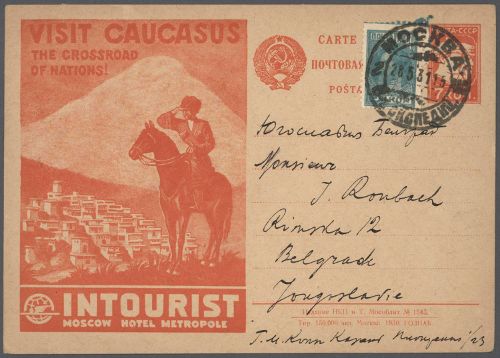 VISIT CAUCASUS
THE CROSSROAD
OF NATIONS!
INTOURIST
MOSCOW HOTEL METROPOLE
CARTE
ПОЧТОВАЯ
МОСКВА
28.5.31
Югославия Белград
Monsieur
J. Roubach
Rimska 12
Belgrade
Jougoslavie
Издание НКП и Т. Мособлит № 1543.
Тир. 150.000 экз. Москва 1930. ГОЗНАК